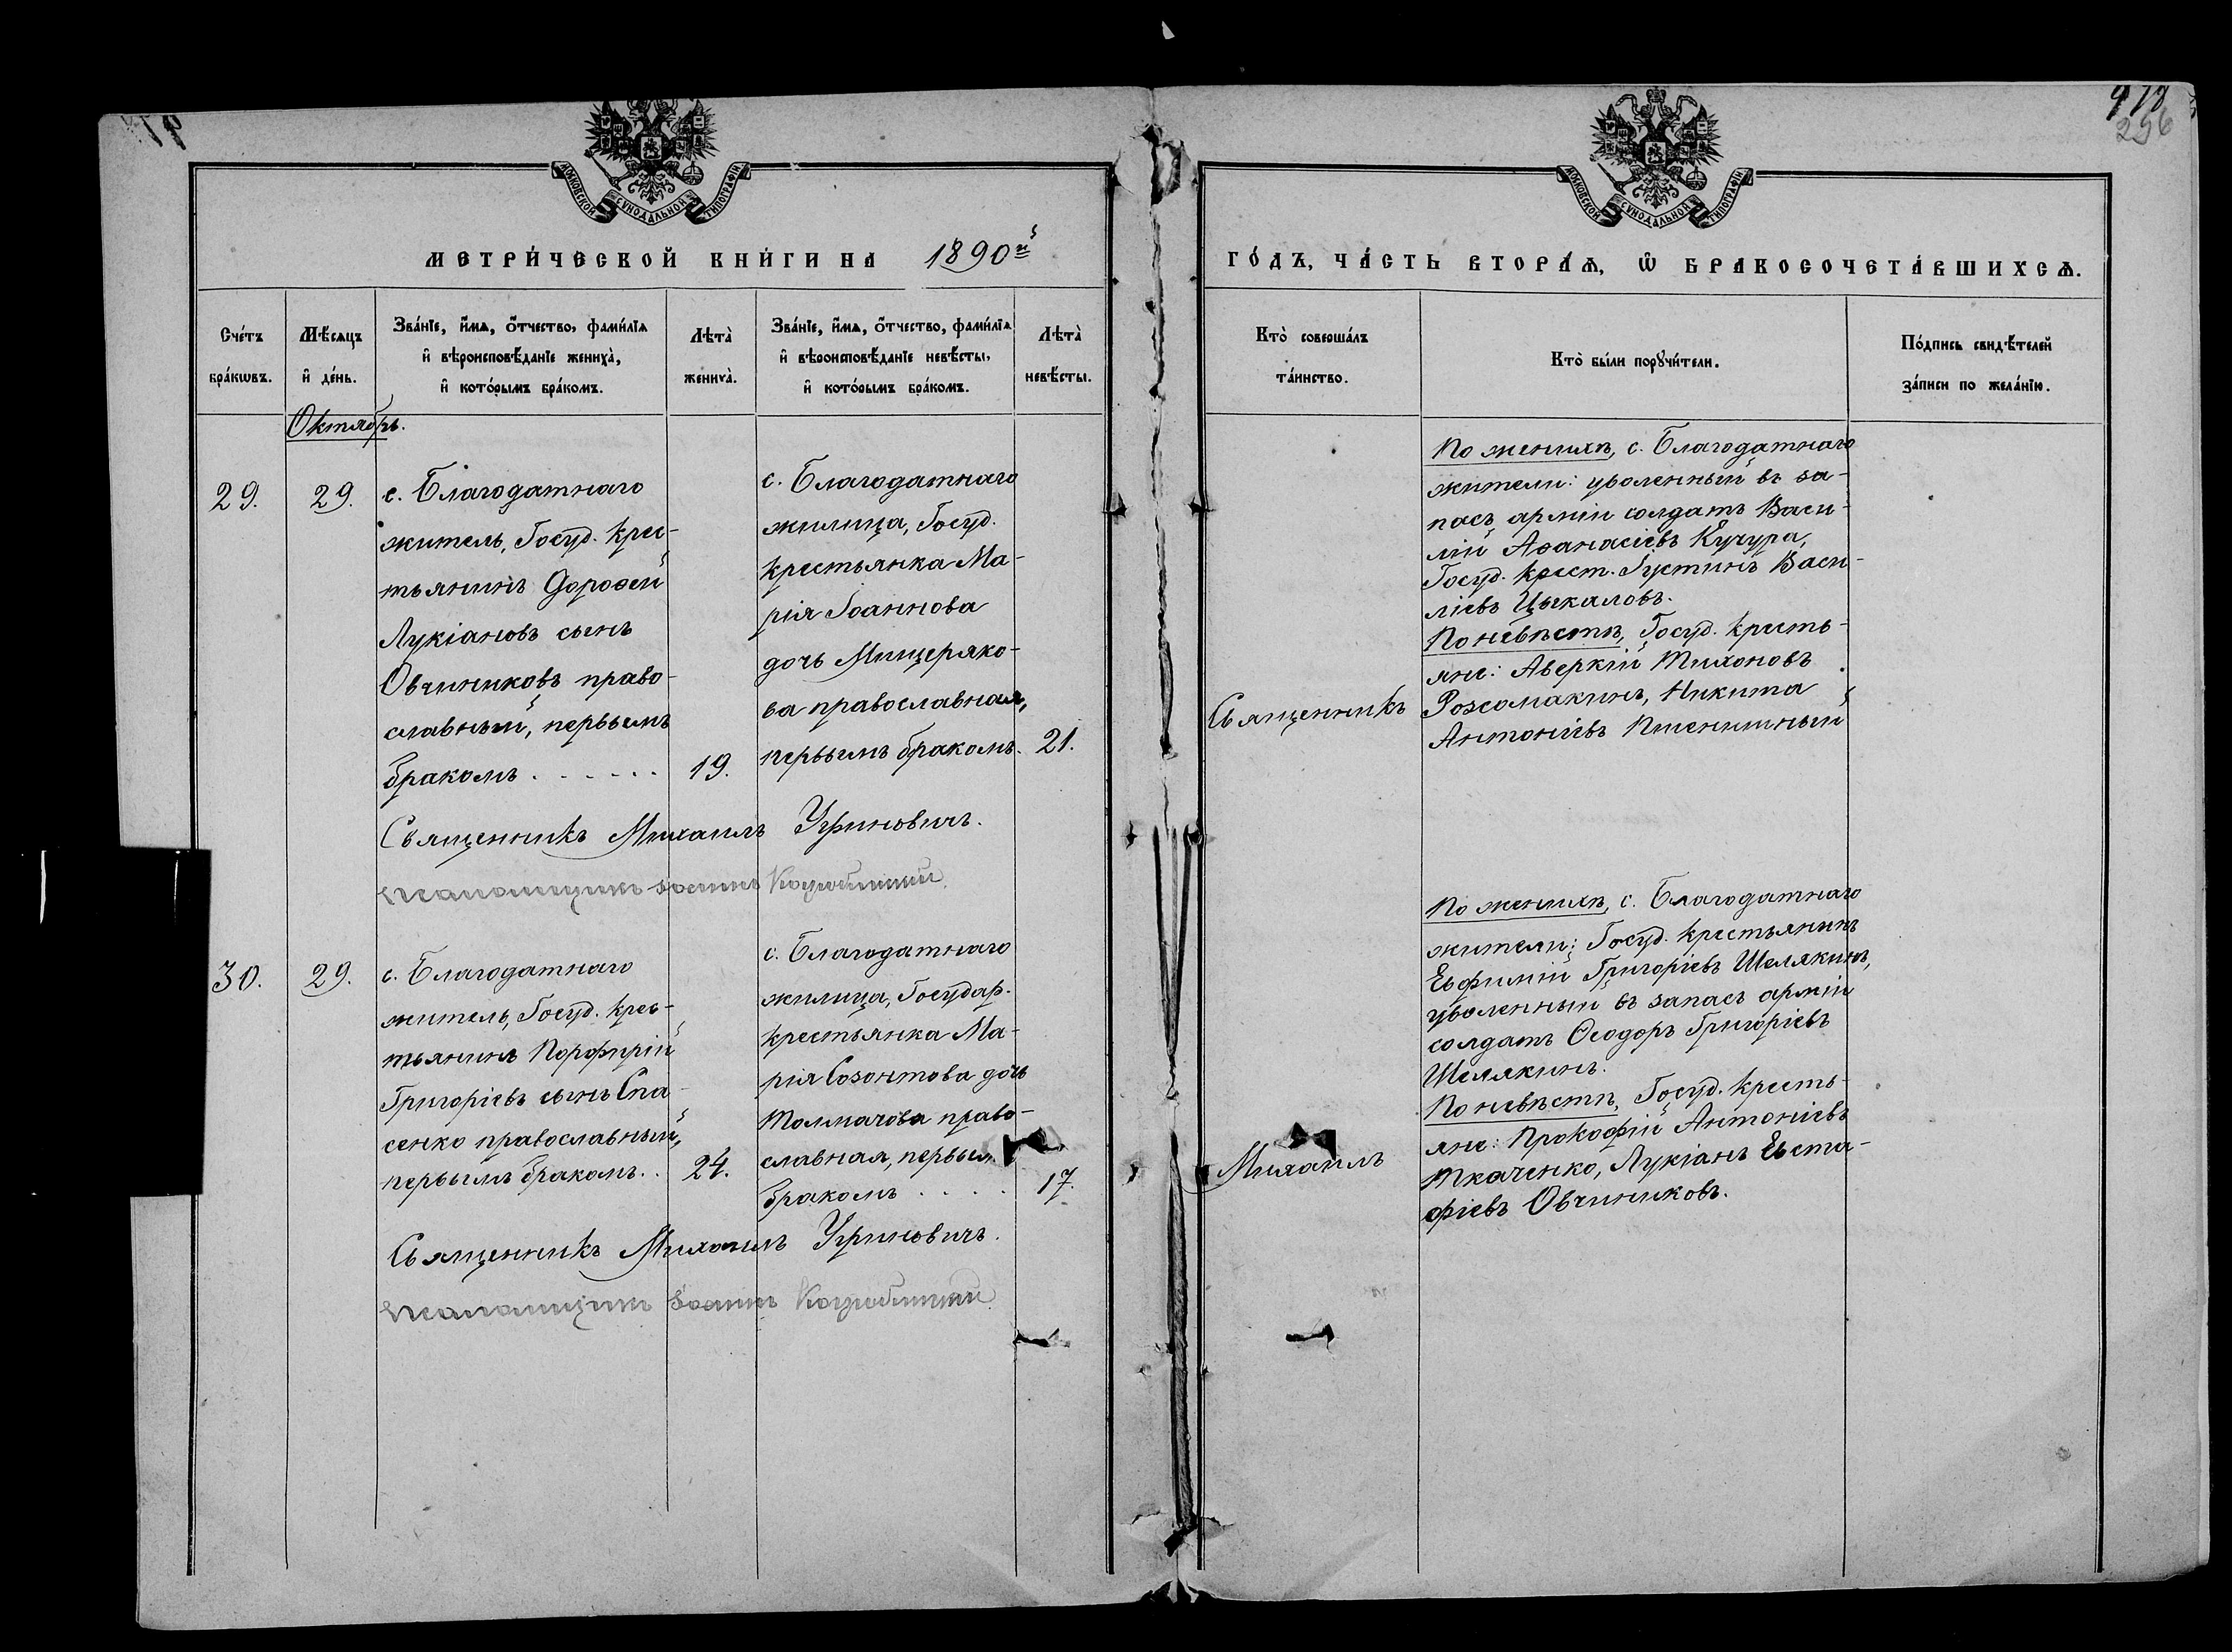 МОСКОВСКОЙ СѴНОДАЛЬНОЙ ТИПОГРАФІИ
МЕТРИ́ЧЕСКОЙ КНИ́ГИ НА 1890й
Сче́тъ бра́кѡвъ.
Мѣ́сѧцъ и҆ де́нь.
Зва́нїе, и҆́мѧ, ѻ҆́тчество, фами́лїѧ
и҆ вѣроисповѣ́данїе жениха̀,
и҆ кото́рымъ бра́комъ.
Лѣта̀ жениха̀.
Зва́нїе, и҆́мѧ, ѻ҆́тчество, фами́лїѧ
и҆ вѣроисповѣ́данїе невѣ́сты,
и҆ кото́рымъ бра́комъ.
Лѣта̀ невѣ́сты.
Октябрь.
29.
29.
с. Благодатнаго
житель, Госуд. крес-
тьянинъ Дорофей
Лукіановъ сынъ
Овчиниковъ право-
славный, первымъ
бракомъ . . . . . .
19.
с. Благодатнаго
жилица, Госуд.
крестьянка Ма-
рія Іоаннова
дочь Мищеряко-
ва православная,
первымъ бракомъ.
21.
Священникъ Михаилъ Угриновичъ.
Псаломщикъ Іоаннъ
30.
29.
с. Благодатнаго
житель, Госуд. крес-
тьянинъ Порфирій
Григоріевъ сынъ Спа-
сенко православный,
первымъ бракомъ. .
24.
с. Благодатнаго
жилица, Государ.
крестьянка Ма-
рія Созонтова дочь
Толмачова право-
славная, первым
бракомъ . . . .
17.
Священникъ Михаилъ Угриновичъ.
Псаломщикъ Іоаннъ
478
296
МОСКОВСКОЙ СѴНОДАЛЬНОЙ ТИПОГРАФІИ
ГО́ДЪ, ЧА́СТЬ ВТОРА́Ѧ, Ѡ҆ БРАКОСОЧЕТА́ВШИХСѦ.
Кто̀ соверша́лъ
та́инство.
Кто̀ бы́ли порꙋчи́тели.
По́дпись свидѣ́телей
за́писи по жела́нїю.
Священникъ
По женихѣ, с. Благодатнаго
жители: уволенный въ за-
пасъ арміи солдатъ Васи-
лій Аѳанасіевъ Кучура,
Госуд. крест. Іустинъ Васи-
ліевъ Цыкаловъ.
По невѣстѣ, Госуд. кресть-
яне: Аверкій Тихоновъ
Розсомакинъ, Никита
Антоніевъ Пшеничный
Михаилъ
По женихѣ, с. Благодатнаго
жители: Госуд. крестьянинъ
Евфимій Григоріевъ Шелякинъ,
уволенный въ запасъ арміи
солдатъ Ѳеодоръ Григоріевъ
Шелякинъ.
По невѣстѣ, Госуд. кресть-
яне: Прокофій Антоніевъ
Ткаченко, Лукіанъ Евста-
фіевъ Овчиниковъ.